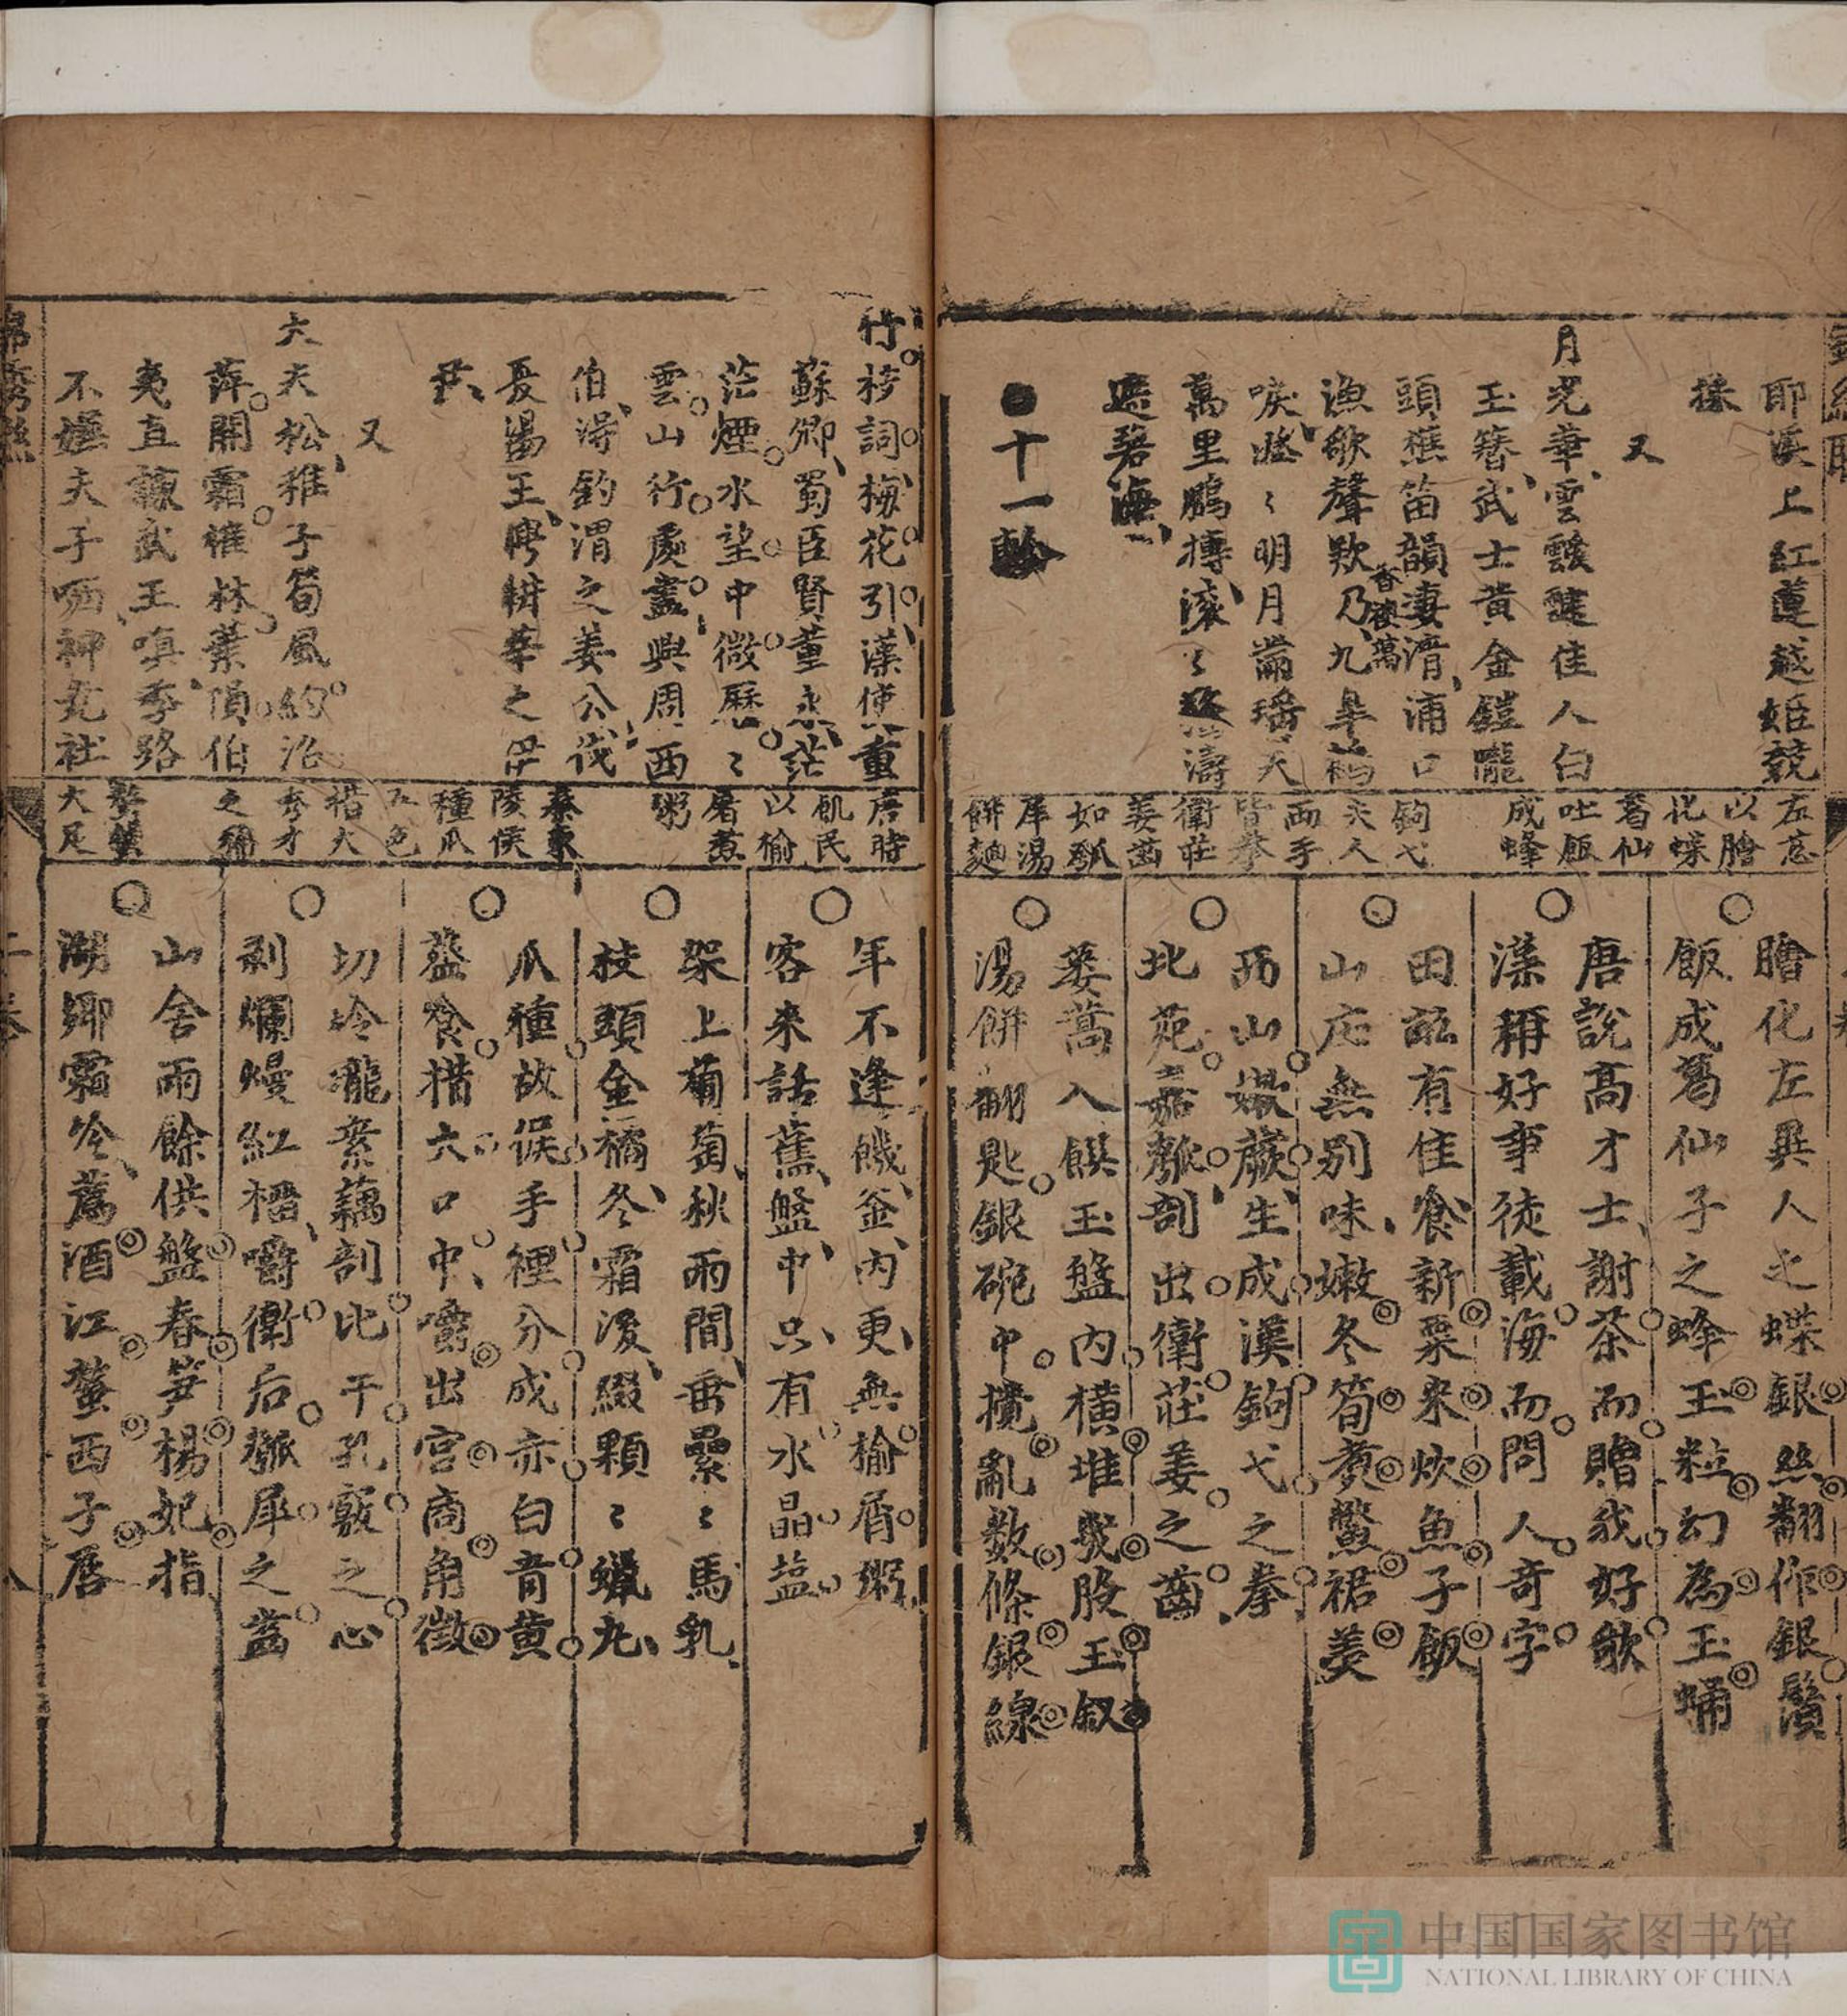 耶溪上紅蓮越姬競
採
又
月光華雲靉靆佳人白
玉簪武士黃金鎧隴
頭樵笛韻淒清浦口
漁歌聲欸乃九皐鶴
唳噰〻明月滿瑤天
萬里鵬摶滾〻
遮碧海
十一
左慈
以膾
化蝶
葛仙
吐飯
成蜂
鉤弋
夫人
兩手
皆拳
衛莊
姜齒
如瓠
犀湯
餅麵
膾化左異人之蝶銀絲翻作銀鬚
飯成葛仙子之蜂玉粒幻為玉蛹
唐說高才士謝茶而贈我好歌
漢稱好事徒載海而問人奇字
田畝有佳飱新粟来炊魚子飯
山庄無別味嫩冬筍煑鱉裙羹
西山嫩蕨生成漢鉤弋之拳
北苑嘉瓠剖出衛莊姜之齒
蒌蒿入饌玉盤内橫堆幾股玉釵
湯餅翻匙銀碗中攪亂数條銀線
竹枝詞梅花引漢使重
蘇卿蜀臣賢董永茫
茫煙水望中微歷〻
雲山行處盡興周西
伯浔釣渭之姜公伐
夏湯王聘耕莘之
尹
又
大夫松稚子筍風約沼
萍開霜摧林葉隕伯
夷直諫武王嗔季路
不嫌夫子哂神堯社
唐時
飢民
以榆
屑煮
粥
秦東
陵侯
種瓜
五色
措大
秀才
之稱
螯蟹
大足
年不逢饑釜内更無榆屑粥
客来話舊盤中只有水晶塩
架上葡萄秋雨間垂纍〻馬乳
枝頭金橘冬霜後綴顆〻蠟丸
瓜種故侯手裡分成赤白青黄
虀食措大口中嚼出宮商角徵
切玲瓏素藕剖比干孔竅之心
剥爛熳紅榴嚼衛后瓠犀之齒
山舍雨餘供盤春笋楊妃指
湖卿霜冷薦酒江螯西子唇
中国国家图书馆
NATIONAL LIBRARY OF CHINA